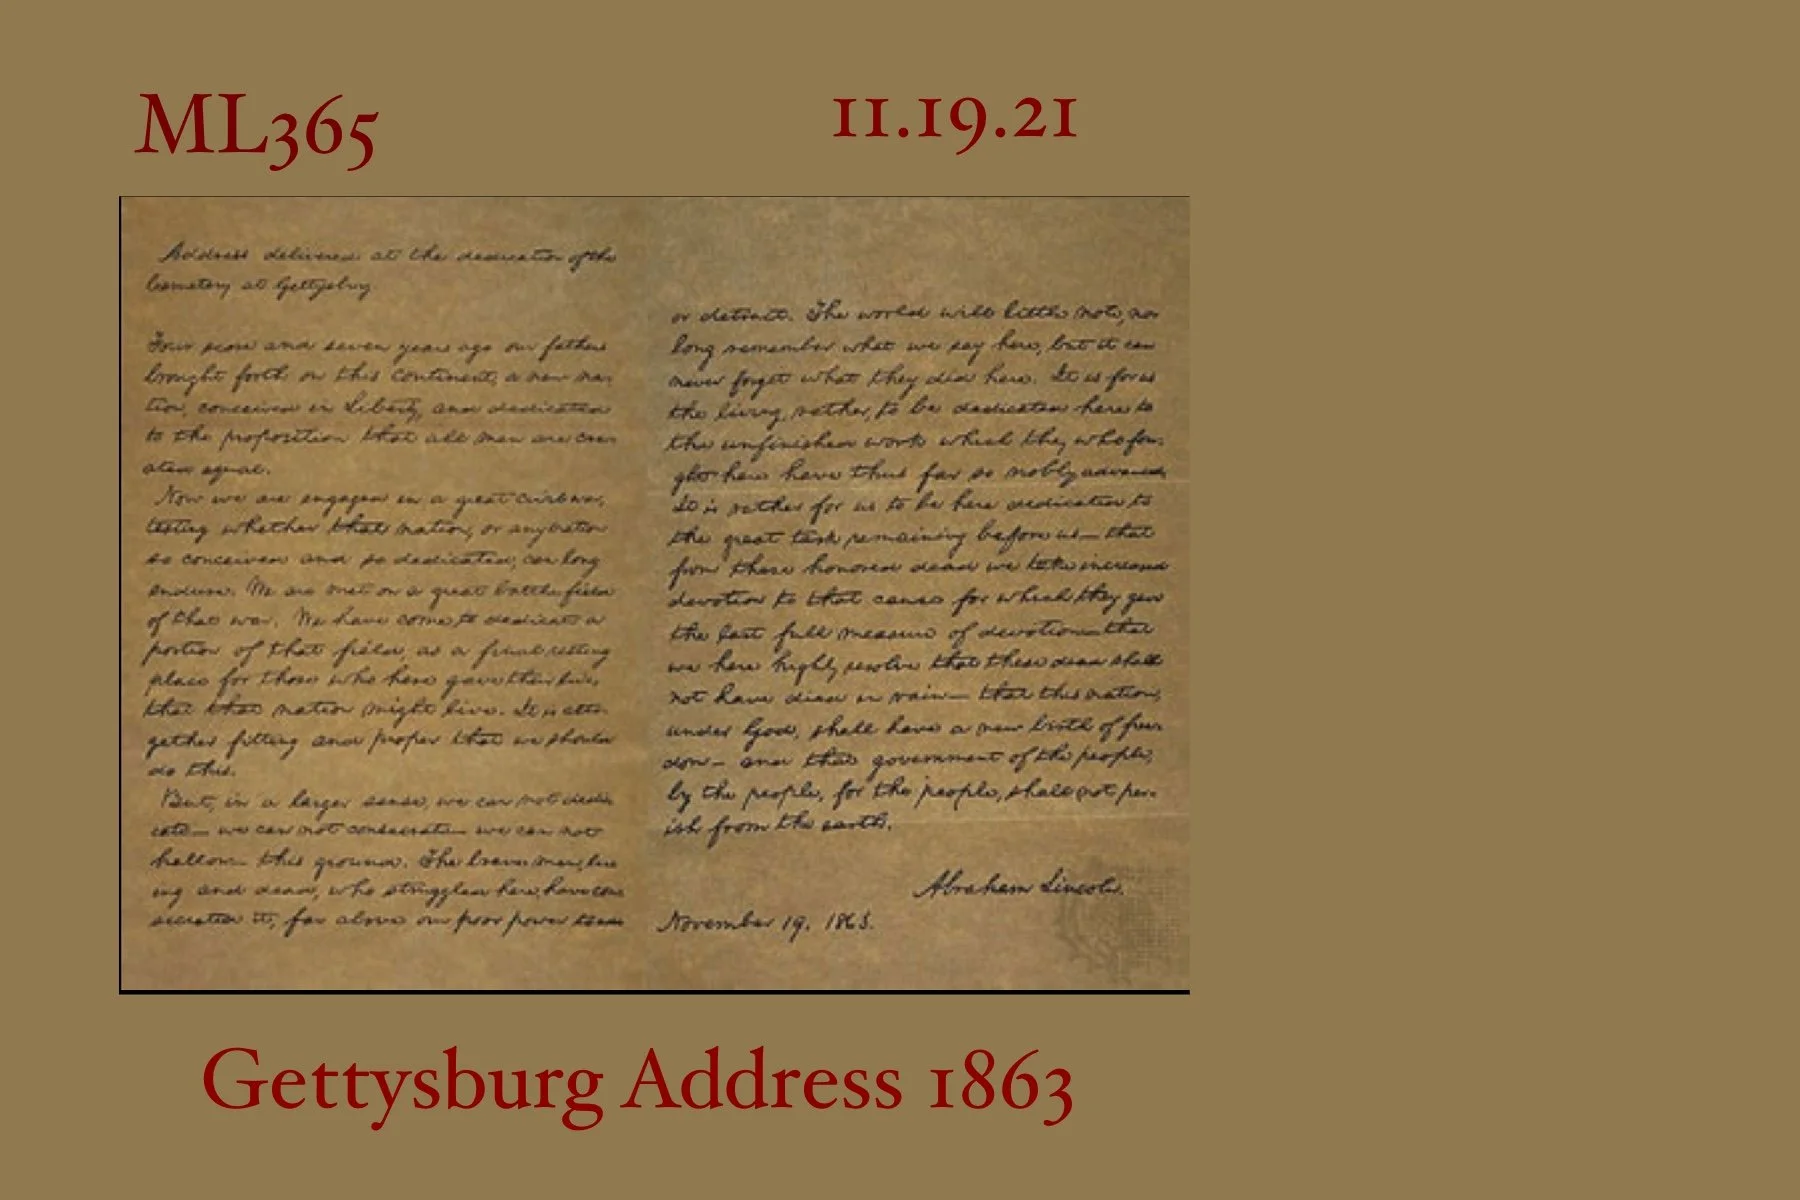 ML365
11.19.21
Address delivered at the dedication of the
Cemetery at Gettysburg.
Four score and seven years ago our fathers
brought forth on this continent, a new na-
tion, conceived in Liberty, and dedicated
to the proposition that all men are cre-
ated equal.
Now we are engaged in a great civil war,
testing whether that nation, or any nation
so conceived and so dedicated, can long
endure. We are met on a great battle-field
of that war. We have come to dedicate a
portion of that field, as a final resting
place for those who here gave their lives,
that that nation might live. It is alto-
gether fitting and proper that we should
do this.
But, in a larger sense, we can not dedi-
cate— we can not consecrate— we can not
hallow— this ground. The brave men, liv-
ing and dead, who struggled here, have con-
secrated it, far above our poor power to add
or detract. The world will little note, nor
long remember what we say here, but it can
never forget what they did here. It is for us
the living, rather, to be dedicated here to
the unfinished work which they who fou-
ght here have thus far so nobly advanced.
It is rather for us to be here dedicated to
the great task remaining before us— that
from these honored dead we take increased
devotion to that cause for which they gave
the last full measure of devotion— that
we here highly resolve that these dead shall
not have died in vain— that this nation,
under God, shall have a new birth of free-
dom— and that government of the people,
by the people, for the people, shall not per-
ish from the earth.
Abraham Lincoln.
November 19, 1863.
Gettysburg Address 1863